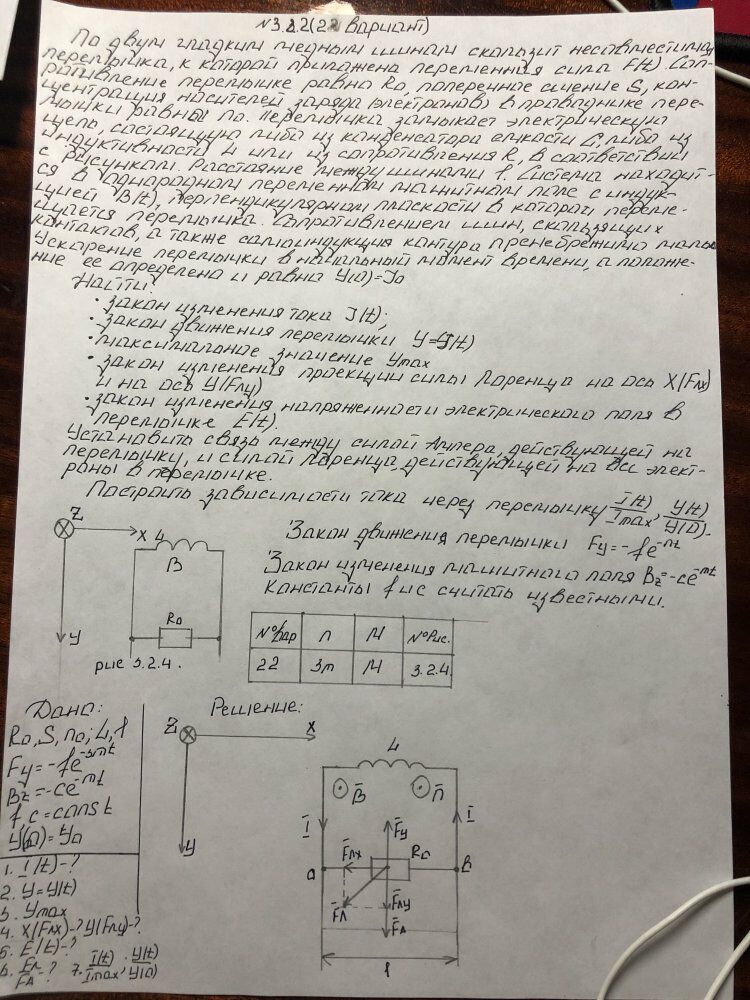 №3.2.2(22 вариант)
По двум гладким медным шинам скользит несовместимая
перемычка, к которой приложена переменная сила F(t). Соп-
ротивление перемычке равна R0, поперечное сичение S, кон-
центрация насителей заряда (электронов) в праваднике пере-
мычки равны n0. Перемычка замыкает электрическую
цепь, состоящую либо из канденсатора емкасти C, либо из
индуктивности L или из сопротивления R, в соответствии
с рисунком. Расстояние между шинами l. Система находит-
ся в однородном переменном магнитном поле с индук-
цией B(t), перпендикулярном плоскости в которой переме-
щается перемычка. Сопротивлением шин, скользящих
контактов, а также самоиндукция контура пренебрежимо малы.
Ускарение перемычки в начальный момент времени, а полаже-
ние ее определена и равна Y(0)=Y0
Найти:
• закон изменения тока I(t);
• закон движения перемычки Y=Y(t)
• максимальное значение Ymax
• закон изменения проекции силы Лоренца на ось X(Fлx)
и на ось Y(Fлy)
• закон изменения напряженности электрического поля в
перемычке E(t).
Установить связь между силой Ампера, действующей на
перемычку, и силой Лоренца, действующей на все элект-
роны в перемычке.
Построить зависимости тока через перемычку I(t)/Imax, Y(t)/Y(0).
Закон движения перемычки Fy=-fe^-nt
Закон изменения магнитного поля Bz=-ce^-mt
Константы f и c считать известными.
Z
X
Y
L
B
R0
рис 3.2.4.
№Вар n M №Рис.
22 3m M 3.2.4.
Дано:
R0, S, n0, L, l
Fy=-fe^-3mt
Bz=-ce^-mt
f c=const
Y(0)=Y0
1. I(t)-?
2. Y=Y(t)
3. Ymax
4. X(Fлx)-? Y(Fлy)-?
5. E(t)-?
6. Fл/FA-? 7. I(t)/Imax; Y(t)/Y(0)
Решение:
Z
X
Y
L
B n
I I
Fy
Fлx R0
a b
Fл Fлy
FA
l